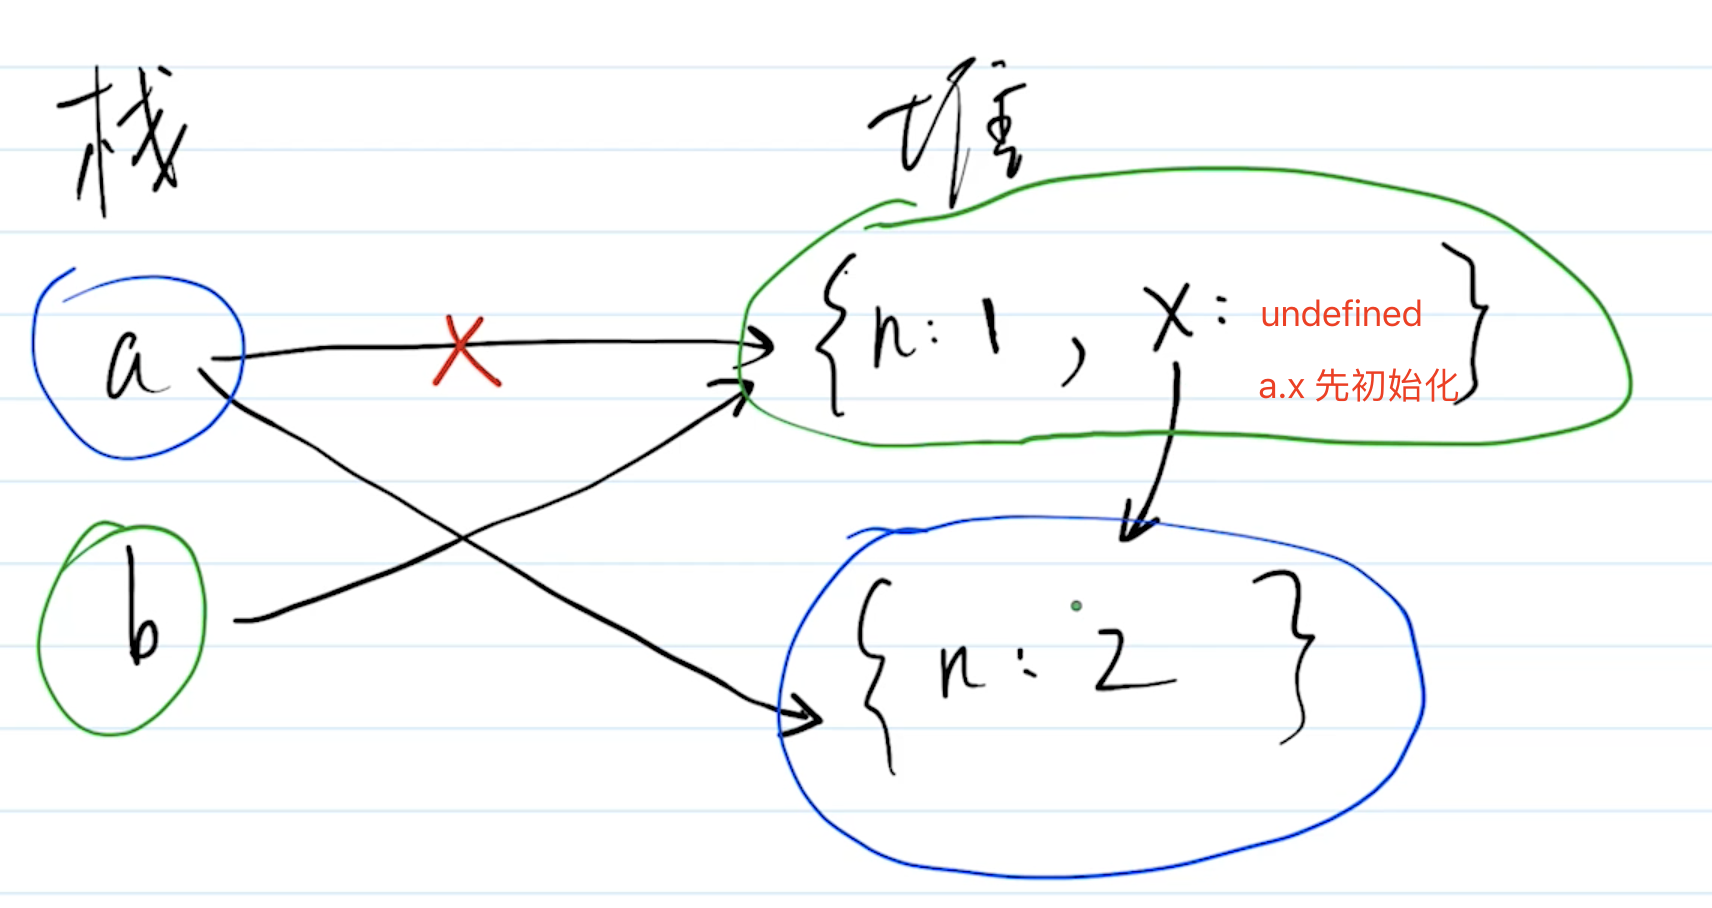 栈 堆
a {n:1, x: undefined }
a.x 先初始化
b
{n:2 }